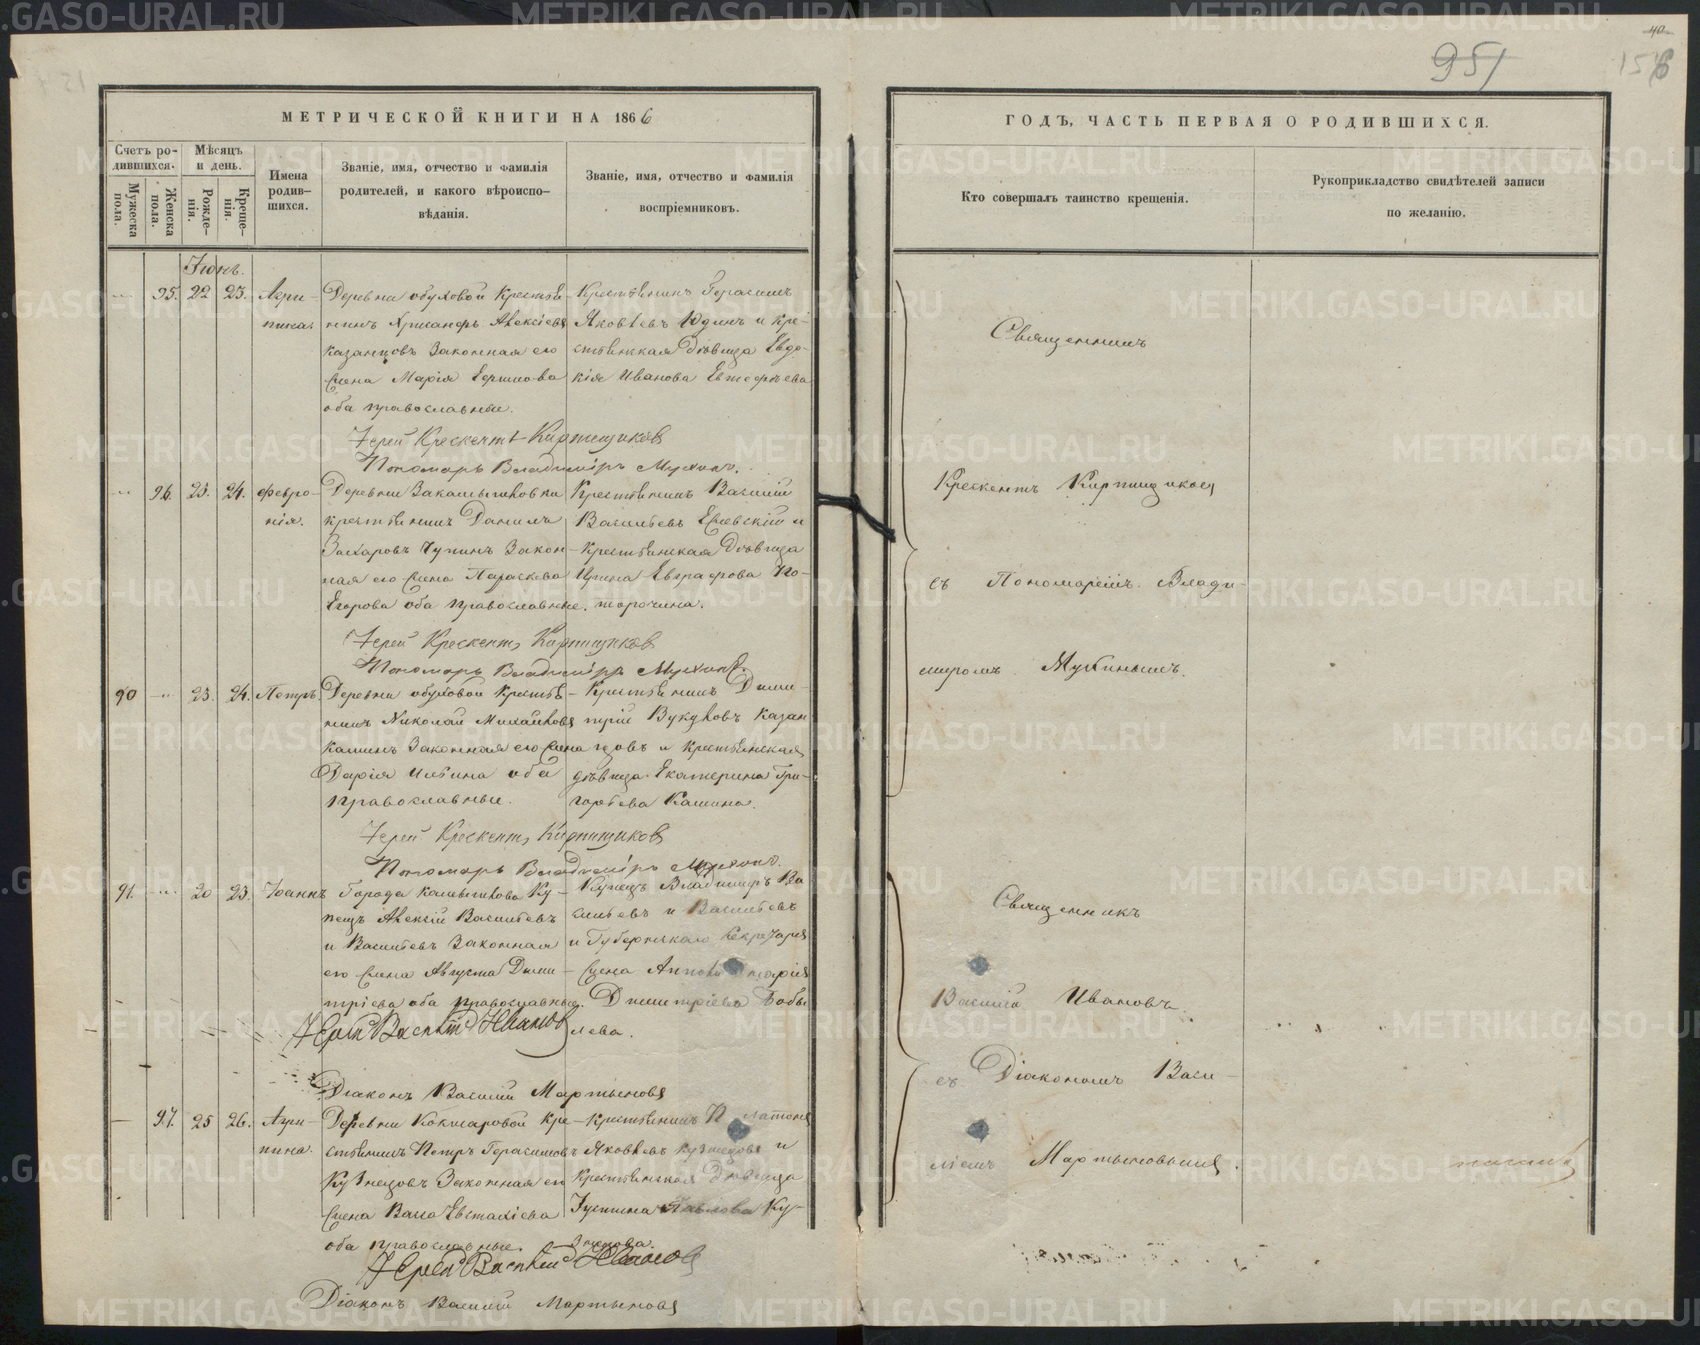 МЕТРИЧЕСКОЙ КНИГИ НА 1866
Счетъ родившихся.
Мужеска пола.
Женска пола.
Мѣсяцъ и день.
Рожденія.
Крещенія.
Имена родившихся.
Званіе, имя, отчество и фамилія
родителей, и какого вѣроиспо-
вѣданія.
Званіе, имя, отчество и фамилія
воспріемниковъ.
Іюнь.
95. 22 23. Агри-
пина.
Деревни Обуховой крестья-
нинъ Алексіевъ
Казанцовъ законная его
жена Марія Ершова
оба православные.
Крестьянинъ Герасимъ
Яковлевъ Юдинъ и кре-
стьянская дѣвица Евдо-
кія Иванова
Іерей Крескентъ Кирпищиковъ
Пономарь Владиміръ Мухинъ.
96. 23. 24. Февро-
нія.
Деревни Закамышловки
крестьянинъ Данилъ
Захаровъ Чупинъ закон-
ная его жена Параскева
Егорова оба православные.
Крестьянинъ Василій
Васильевъ и
крестьянская дѣвица
Ирина Евграфова По-
торочина.
Іерей Крескентъ Кирпищиковъ
Пономарь Владиміръ Мухинъ.
90 23. 24. Петръ.
Деревни Обуховой крестья-
нинъ Николай Михайловъ
Кашинъ законная его жена
Дарія Ильина оба
православные.
Крестьянинъ Дими-
трій Вукуловъ Казан-
цовъ и крестьянская
дѣвица Екатерина Гри-
горьева Кашина.
Іерей Крескентъ Кирпищиковъ
Пономарь Владиміръ Мухинъ.
91. 20 23. Іоаннъ
Города Камышлова ку-
пецъ Алексій Васильевъ
и Васильевъ законная
его жена Августа Дими-
тріева оба православные.
Купецъ Владимиръ Ва
сильевъ и Васильевъ
и Губернскаго Секретаря
жена
Димитріева Бобы
лева.
Іерей Василій Ивановъ
Діаконъ Василій Мартыновъ
97. 25 26. Агри-
пина.
Деревни Кокшаровой кре-
стьянинъ Петръ Герасимовъ
Кузнецовъ законная его
жена Васса Евстафіева
оба православные.
Крестьянинъ Платонъ
Яковлевъ Кузнецовъ и
крестьянская дѣвица
Іустина Павлова Ку-
знецова.
Іерей Василій Ивановъ
Діаконъ Василій Мартыновъ
951
156
ГОДЪ, ЧАСТЬ ПЕРВАЯ О РОДИВШИХСЯ.
Кто совершалъ таинство крещенія.
Рукоприкладство свидѣтелей записи
по желанію.
Священникъ
Крескентъ Кирпищиковъ
съ Пономаремъ Влади-
міромъ Мухинымъ.
Священникъ
Василій Ивановъ
съ Діакономъ Васи-
ліемъ Мартыновымъ.
METRIKI.GASO-URAL.RU